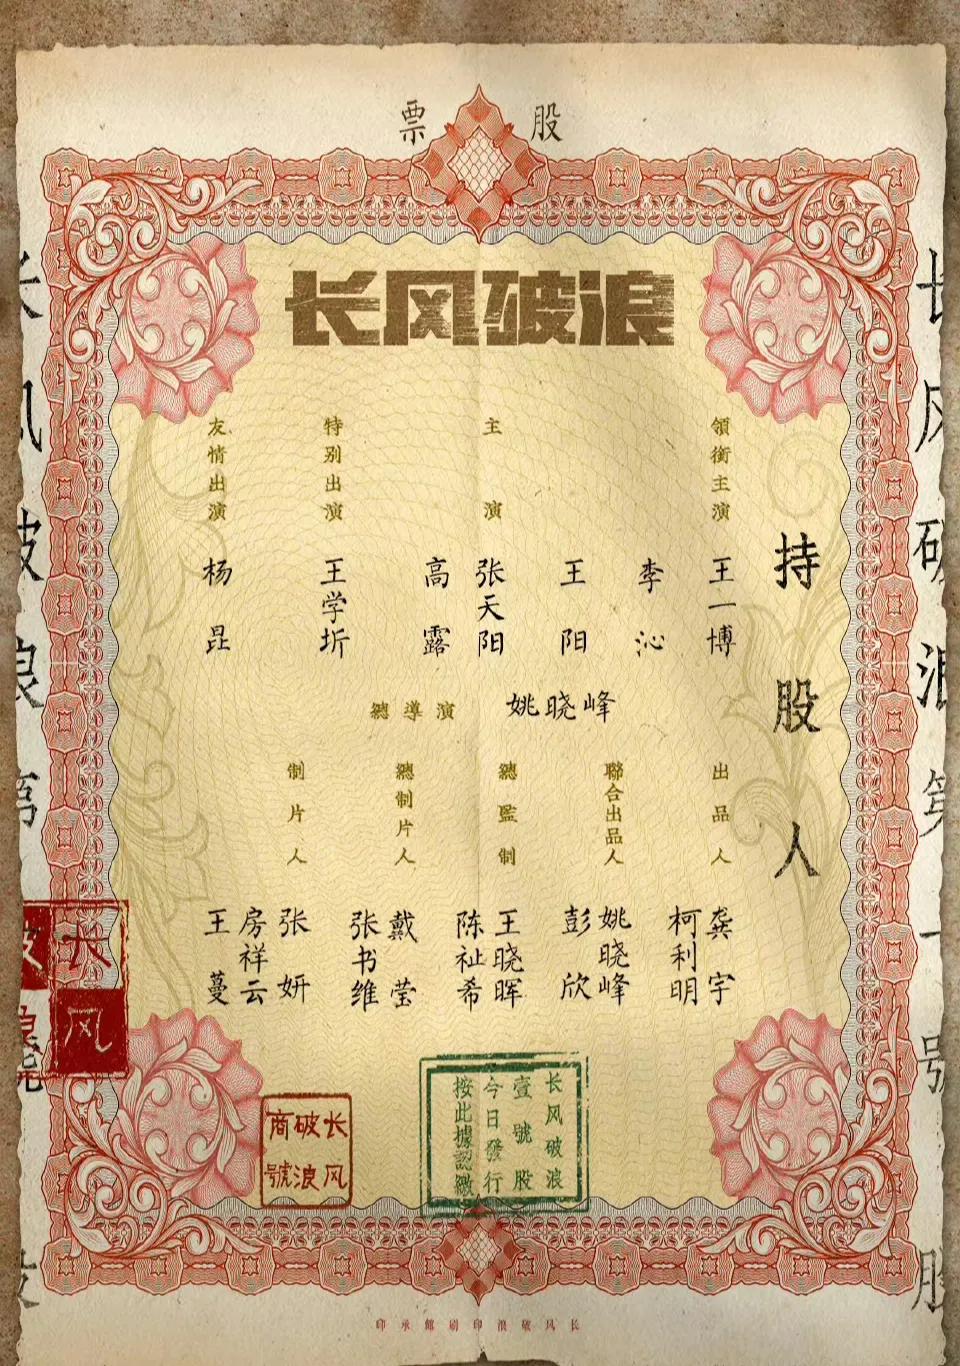 股票
长风破浪
持股人
領銜主演
王一博
李沁
主演
王阳
张天阳
高露
特别出演
王学圻
友情出演
杨昆
總導演
姚晓峰
出品人
龚宇
柯利明
聯合出品人
姚晓峰
彭欣
總監制
王晓晖
陈祉希
總制片人
戴莹
张书维
制片人
张妍
房祥云
王蔓
长风破浪
壹號股
今日發行
按此據認繳
长风
破浪
商號
长风
长风破浪第一號
股
长风破浪印刷館承印